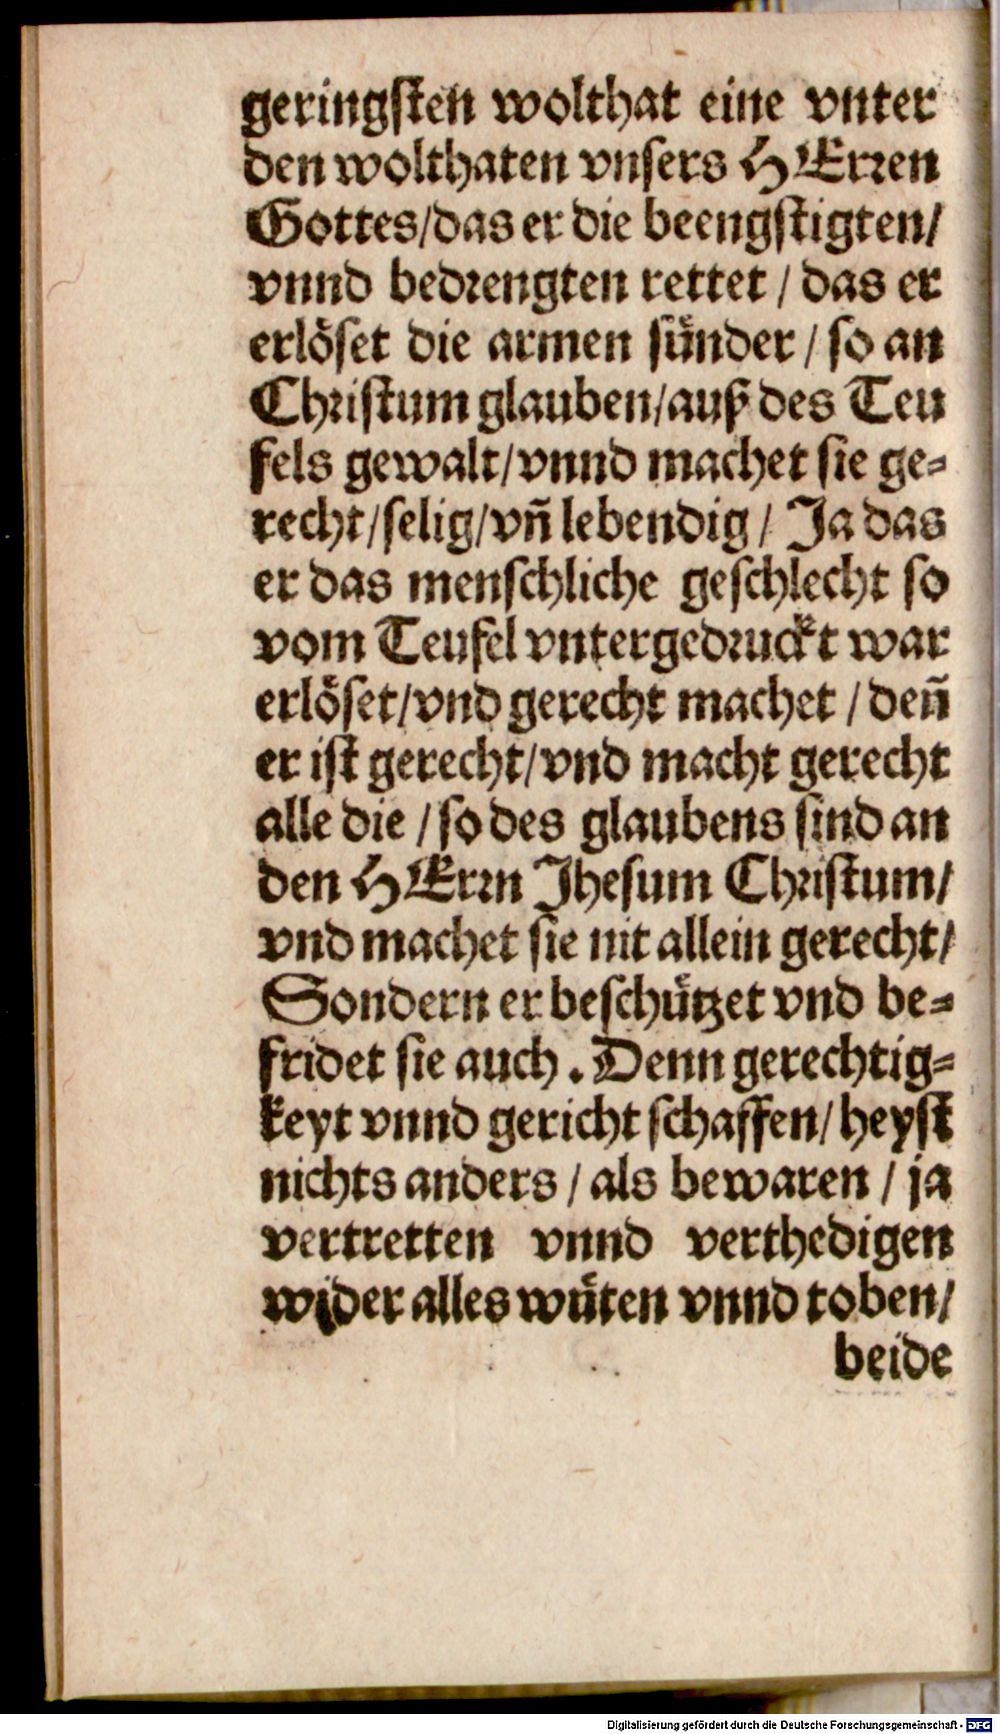 geringsten wolthat eine vnter
den wolthaten vnsers HErren
Gottes/das er die beengstigten/
vnnd bedrengten rettet / das er
erlöset die armen sünder / so an
Christum glauben/auß des Teu
fels gewalt/vnnd machet sie ge=
recht/selig/vñ lebendig / Ja das
er das menschliche geschlecht so
vom Teufel vntergedruckt war
erlöset/vnd gerecht machet / deñ
er ist gerecht/vnd macht gerecht
alle die / so des glaubens sind an
den HErrn Jhesum Christum/
vnd machet sie nit allein gerecht/
Sondern er beschützet vnd be=
fridet sie auch . Denn gerechtig=
keyt vnnd gericht schaffen/heyst
nichts anders / als bewaren / ja
vertretten vnnd verthedigen
wider alles wüten vnnd toben/
beide
Digitalisierung gefördert durch die Deutsche Forschungsgemeinschaft - DFG